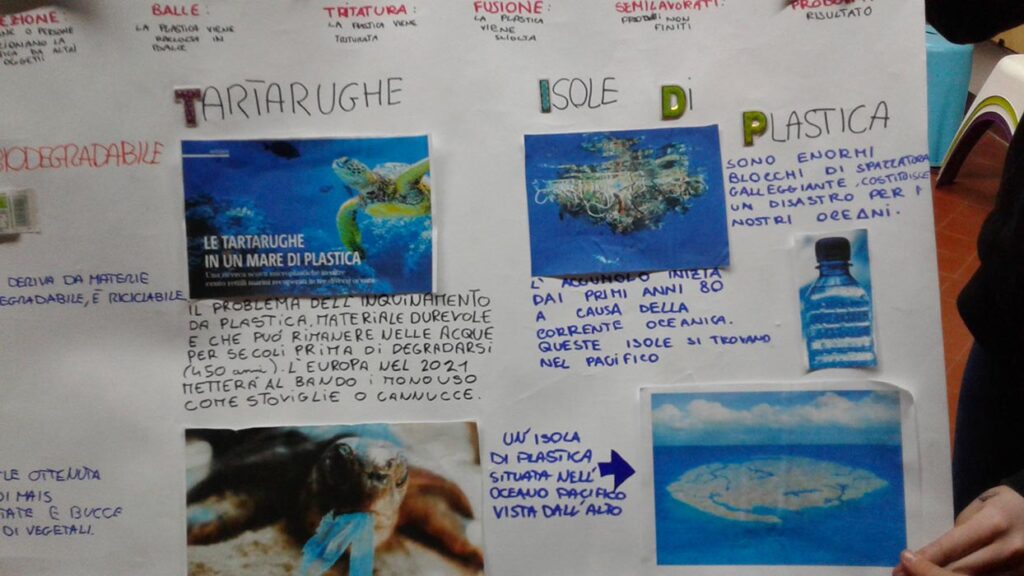 BALLE:
LA PLASTICA VIENE
RACCOLTA IN
BALLE
TRITATURA:
LA PLASTICA VIENE
TRITURATA
FUSIONE:
LA PLASTICA
VIENE
SCIOLTA
SEMILAVORATI:
PRODOTTI NON
FINITI
RISULTATO
OGGETTI
BIODEGRADABILE
DERIVA DA MATERIE
EGRADABILE, E RICICLABILE
LE OTTENUTA
DI MAIS
E BUCCE
DI VEGETALI.
TARTARUGHE
LE TARTARUGHE
IN UN MARE DI PLASTICA
IL PROBLEMA DELL'INQUINAMENTO
DA PLASTICA, MATERIALE DUREVOLE
E CHE PUÒ RIMANERE NELLE ACQUE
PER SECOLI PRIMA DI DEGRADARSI
(450 anni). L'EUROPA NEL 2021
METTERÀ AL BANDO i MONOUSO
COME STOVIGLIE O CANNUCCE.
ISOLE Di PLASTICA
SONO ENORMI
BLOCCHI DI SPAZZATURA
GALLEGGIANTE, COSTITUISCE
UN DISASTRO PER I
NOSTRI OCEANI.
L'ACCUMOLO INIZIA
DAI PRIMI ANNI 80
A CAUSA DELLA
CORRENTE OCEANICA.
QUESTE ISOLE SI TROVANO
NEL PACIFICO
UN'ISOLA
DI PLASTICA
SITUATA NELL'
OCEANO PACIFICO
VISTA DALL'ALTO